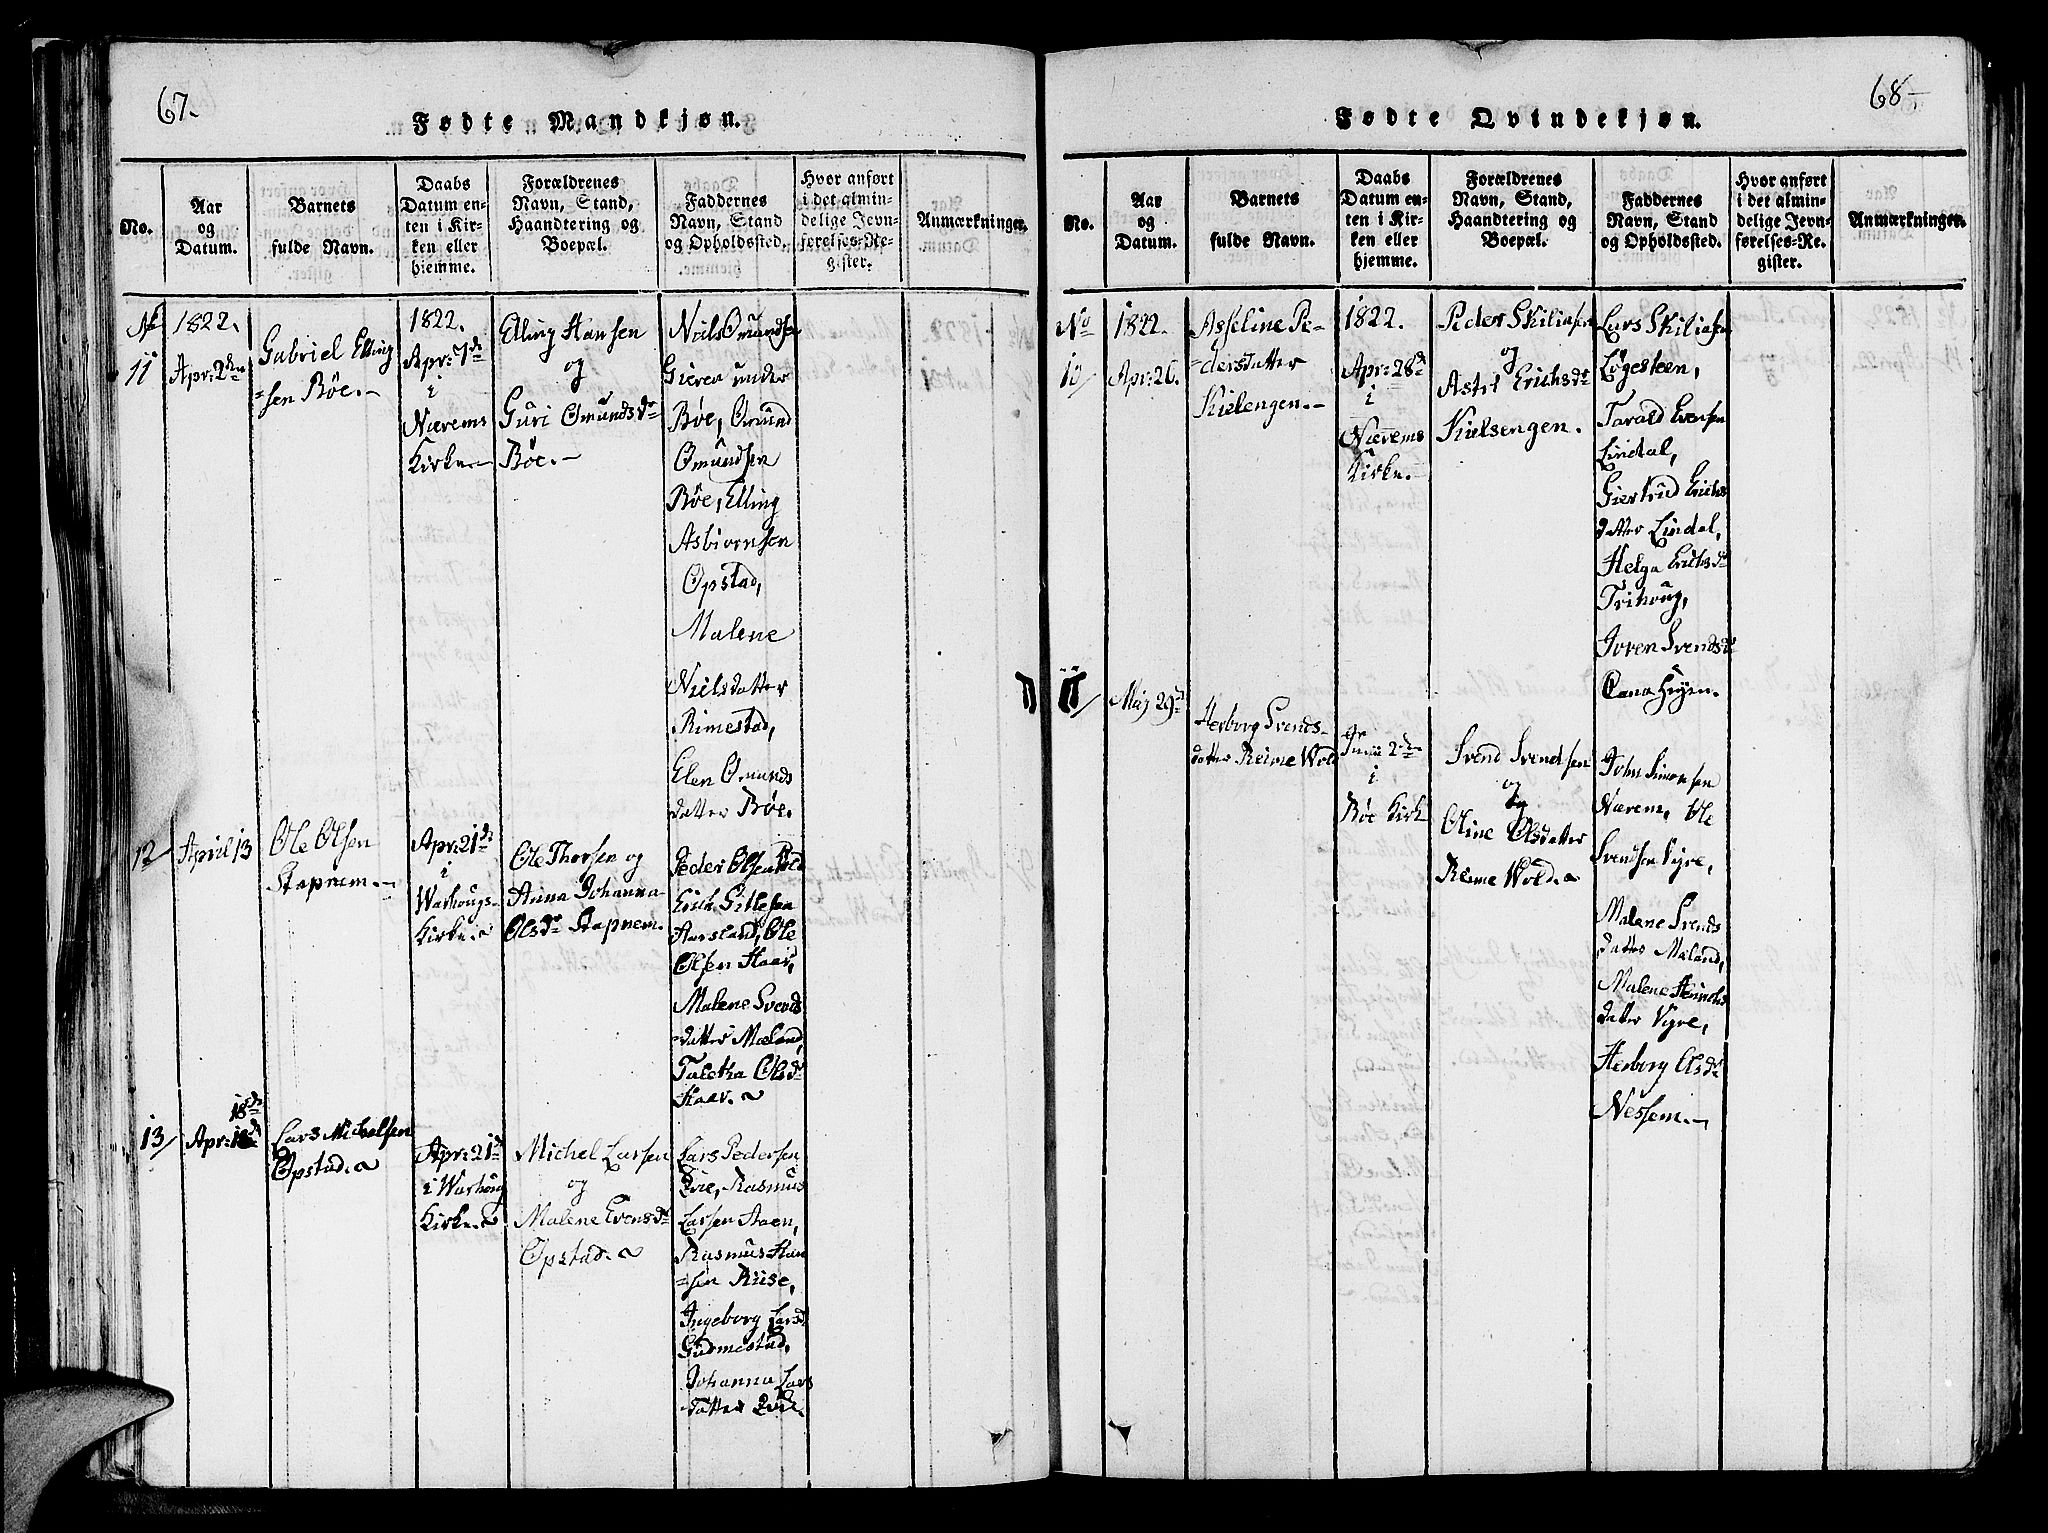 67.
Fødte Mandkjøn.
No.
Aar
og
Datum.
Barnets
fulde Navn.
Daabs
Datum en-
ten i Kir-
ken eller
hjemme.
Forældrenes
Navn, Stand,
Haandtering og
Boepæl.
Faddernes
Navn, Stand
og Opholdssted.
Hvor anført
i det almin-
delige Jevn-
førelses-Re-
gister.
Anmærkninger.
No
11
1822.
Apr: 2den
Gabriel Elling
=sen Bøe.-
1822.
Apr: 7de
i
Nærems
Kirke.-
Elling Hansen
og
Guri Omundsdr
Bøe.-
Niels Omundsen
Gieren under
Bøe, Omund
Omundsen
Bøe, Elling
Asbiornsen
Opstad,
Malene
Nielsdatter
Rimestad,
Elen Omunds
datter Bøe.
12
April 13
Ole Olsen
Stapnem.-
Apr: 21de
i
Warhougs-
Kirke.
Ole Thorsen og
Anna Johanna
Olsdr Stapnem.
Peder Olsen Wold
Erich Sittesen
Aarsland, Ole
Olsen Haar,
Malene Svends
datter Mæland,
Taletha Olsdr
Haar.
13/
18de
Apr: 18de
Lars Michelsen
Opstad.
Apr: 21de
i Warhoug
Kirke.
Michel Larsen
og
Malene Evensdr
Opstad.
Lars Pedersen
Qvie, Rasmus
Larsen Aaen,
Rasmus Han
=sen Riise,
Ingeborg Larsdr
Gudmestad,
Johanna Lars
datter Qvie.
68-
Fødte Qvindekjøn.
No.
Aar
og
Datum.
Barnets
fulde Navn.
Daabs
Datum en-
ten i Kir-
ken eller
hjemme.
Forældrenes
Navn, Stand,
Haandtering og
Boepæl.
Faddernes
Navn, Stand
og Opholdssted.
Hvor anført
i det almin-
delige Jevn-
førelses-Re-
gister.
Anmærkninger.
No
10/
1822.
Apr: 20.
Asseline Pe-
=dersdatter
Kielengen.-
1822.
Apr: 28de
i
Nærems
Kirke.-
Peder Skiliasen
og
Astri Erichsdr
Kielsengen.
Lars Skiliasen
Løgesteen,
Tarald Evensen
Lindal,
Giertrud Erichs
datter Lindal,
Helga Erichsdr
Trihoug,
Joren Svendsdr
11/
Maj 29de
Herborg Svends-
datter Reime Wold
Junii 2den
i
Bøe Kirk
Svend Svendsen
og
Oline Olsdatter
Reime Wold.
John Simonsen
Nærem, Ole
Svendsen Vigre,
Malene Svends
datter Mæland,
Malene Heinrichs
datter Vigre,
Herborg Olsdr
Nessem.-